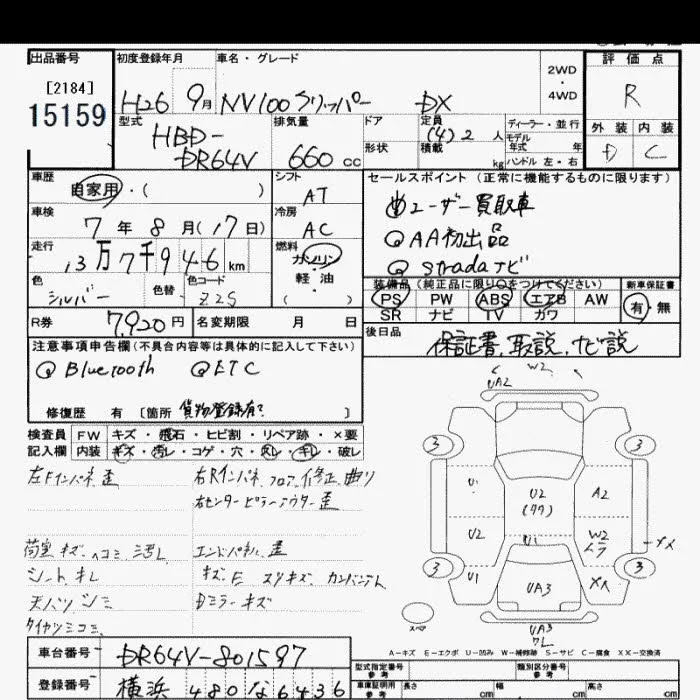 出品番号
[2184]
15159
初度登録年月
H26 9月
車名・グレード
NV100クリッパー DX
2WD
・
4WD
評価点
R
外装 内装
D C
型式
HBD-
DR64V
排気量
660 cc
ドア
形状
定員
(4) 2 人
積載
kg
ディーラー・並行
モデル
年式 年
ハンドル 左・右
車歴
自家用・( )
シフト
AT
車検
7年 8月(17日)
冷房
AC
走行
13万7千946km
燃料
ガソリン
軽油
( )
色
シルバー
色替
色コード
Z2S
R券
7,920円
名変期限 月 日
セールスポイント(正常に機能するものに限ります)
ユーザー買取車
AA初出品
stradaナビ
装備品(純正品に限り○をつけてください)
PS PW ABS エアB AW
SR ナビ TV カワ
新車保証書
有・無
後日品
保証書、取説、ナビ説
注意事項申告欄(不具合内容等は具体的に記入して下さい)
Bluetooth ETC
修復歴 有 [箇所 貨物登録有? ]
検査員 FW キズ・飛石・ヒビ割・リペア跡・×要
記入欄 内装 キズ・汚レ・コゲ・穴・スレ・キレ・破レ
左Fインパネ歪
右Rインパネ、フロア、修正、曲り
右センターピラーアウター歪
荷室キズ、ヘコミ、汚レ
エンドパネル歪
シートキレ
天バリシミ
Dミラーキズ
W2
UA2
3 3
U1 U2 A2
(ワワ)
U2 U1 W2
ムラ
XX
3 3
U1 UA3 XX
UA3
スペア
A-キズ E-エクボ U-凹み W-補修跡 S-サビ C-腐食 XX-交換済
車台番号 DR64V-801597
登録番号 横浜 480 な 6436
型式指定番号 類別区分番号
車庫証明用
参考
長さ cm 幅 cm 高さ cm